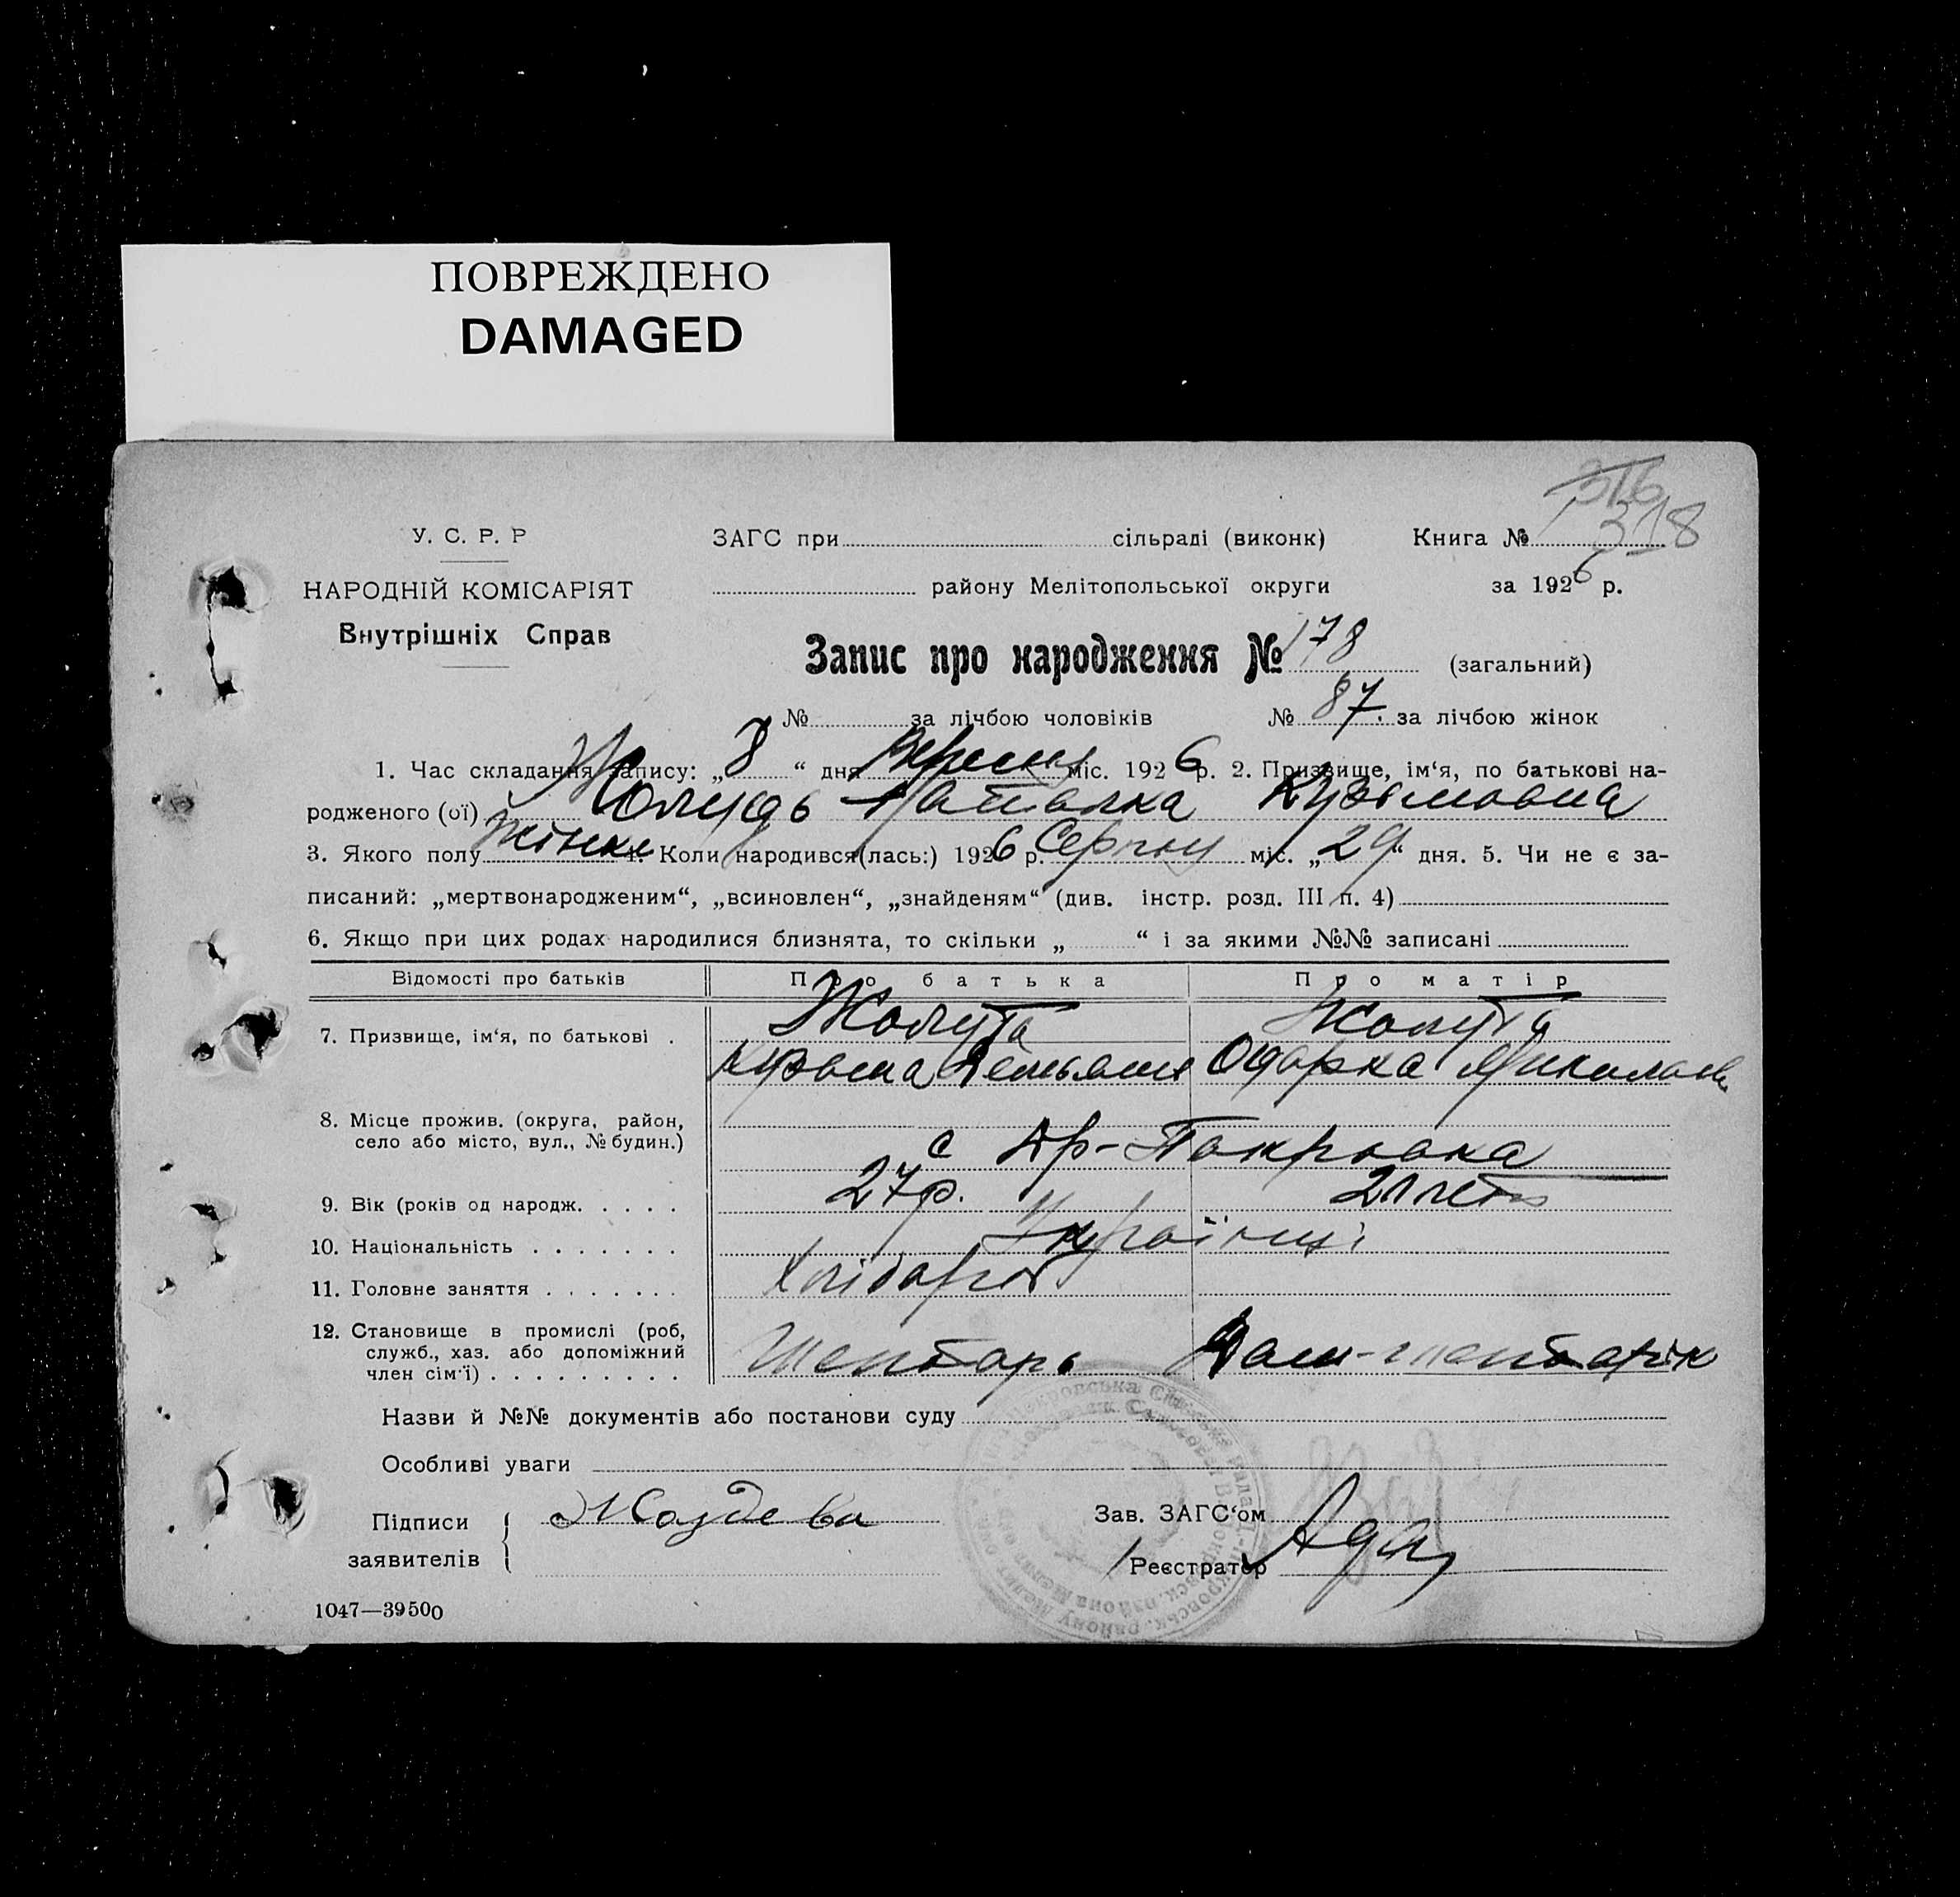 ПОВРЕЖДЕНО
DAMAGED
316
318
У. С. Р. Р
ЗАГС при сільраді (виконк) Книга №
НАРОДНІЙ КОМІСАРІЯТ
району Мелітопольської округи за 1926 р.
Внутрішніх Справ
Запис про народження № 178 (загальний)
№ за лічбою чоловіків № 87. за лічбою жінок
1. Час складання запису: „8“ дня Вересня міс. 1926 р. 2. Призвище, ім‘я, по батькові на-
родженого (ої) Жолудь Наталка Кузьмовна
3. Якого полу жінки 4. Коли народився(лась:) 1926 р. Серпня міс. „29“ дня. 5. Чи не є за-
писаний: „мертвонародженим“, „всиновлен“, „знайденям“ (див. інстр. розд. III п. 4)
6. Якщо при цих родах народилися близнята, то скільки „ “ і за якими №№ записані
Відомості про батьків Про батька Про матір
7. Призвище, ім‘я, по батькові . Жолута Жолута
Кузьма Одарка
8. Місце прожив. (округа, район,
село або місто, вул., № будин.)
с Др-Покровка
9. Вік (років од народж. . . . . 27 р. 21 лет
10. Національність . . . . . . . Українці
11. Головне заняття . . . . . . . Хлібороб
12. Становище в промислі (роб,
служб., хаз. або допоміжний
член сім‘ї) . . . . . . . . .
Назви й №№ документів або постанови суду
Особливі уваги
Підписи
заявителів
Зав. ЗАГС‘ом
Реєстратор
1047—39500